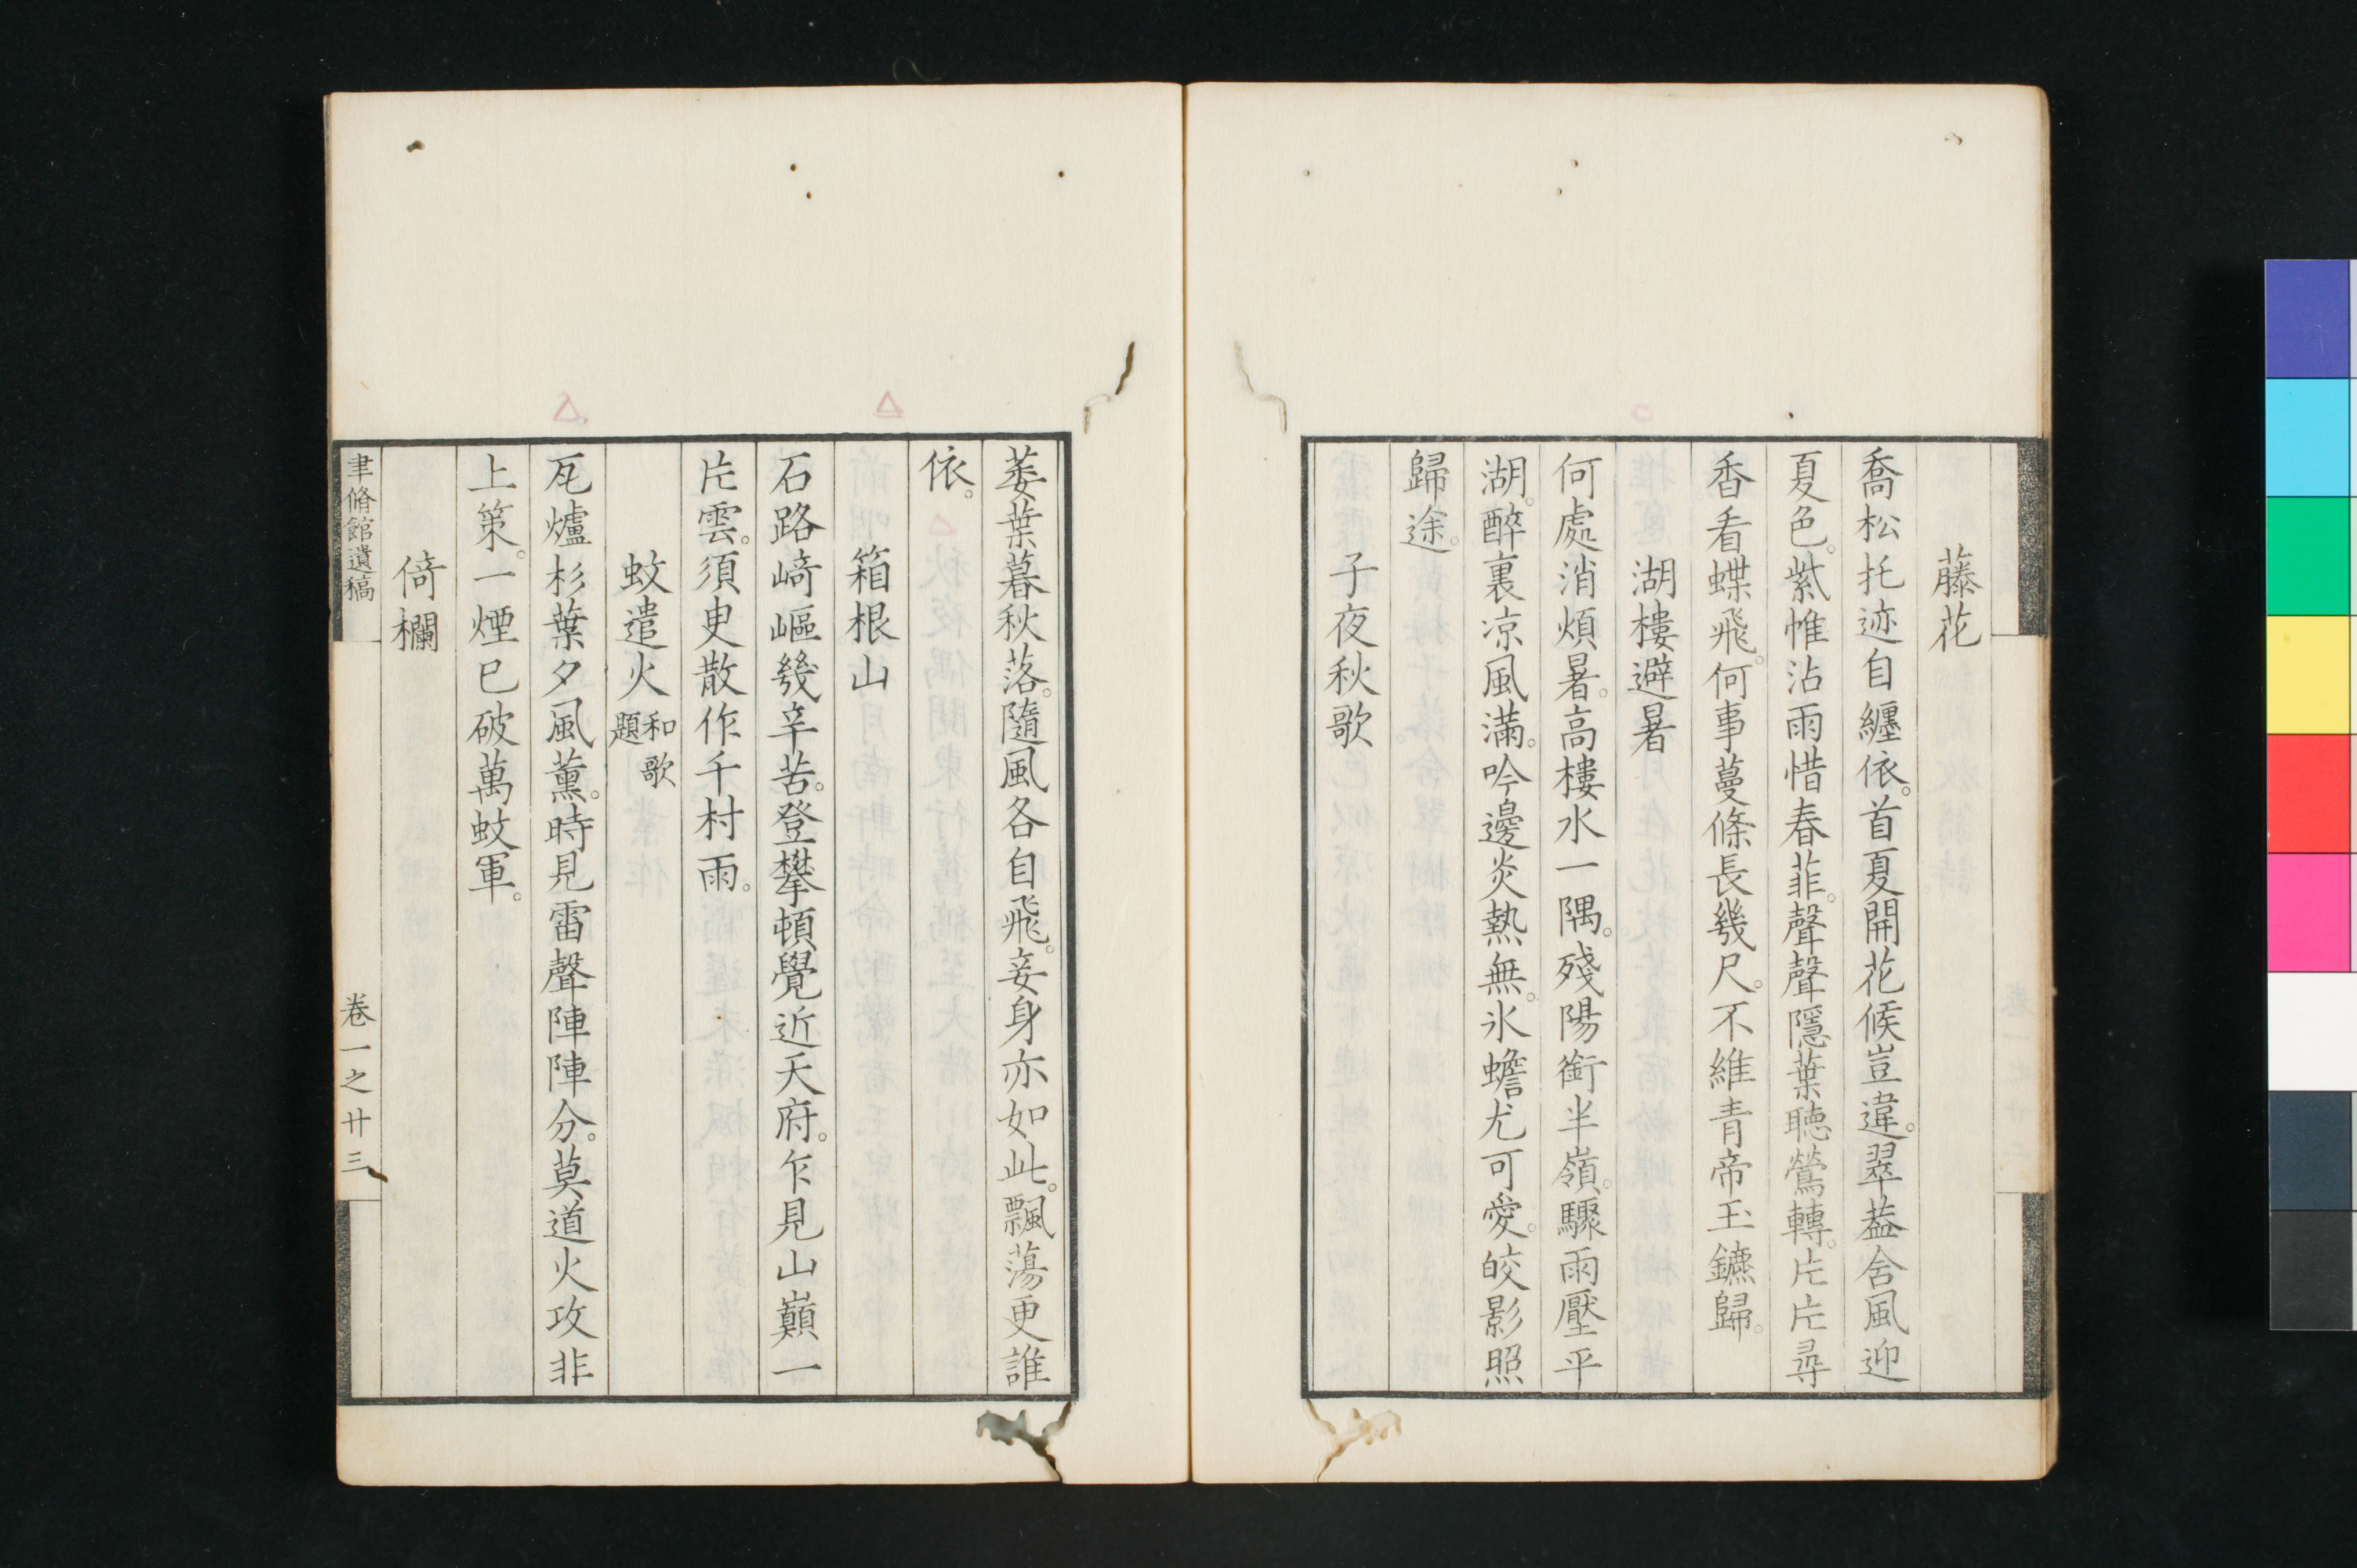 藤花
喬松托迹自纏依。首夏開花候豈違。翠葢含風迎
夏色。紫帷沾雨惜春菲。聲聲隱葉聴鶯轉。片片尋
香看蝶飛。何事蔓條長幾尺。不維青帝玉鑣歸。
湖樓避暑
何處消煩暑。高樓水一隅。殘陽銜半嶺。驟雨壓平
湖。醉裏凉風滿。吟邊炎熱無。氷蟾尤可愛。皎影照
歸途。
子夜秋歌
萎葉暮秋落。隨風各自飛。妾身亦如此。飄蕩更誰
依。
箱根山
石路崎嶇幾辛苦。登攀頓覺近天府。乍見山巓一
片雲。須臾散作千村雨。
蚊遣火 和歌題
瓦爐杉葉夕風薰。時見雷聲陣陣分。莫道火攻非
上策。一煙已破萬蚊軍。
倚欄
聿脩館遺稿 卷一之廿三